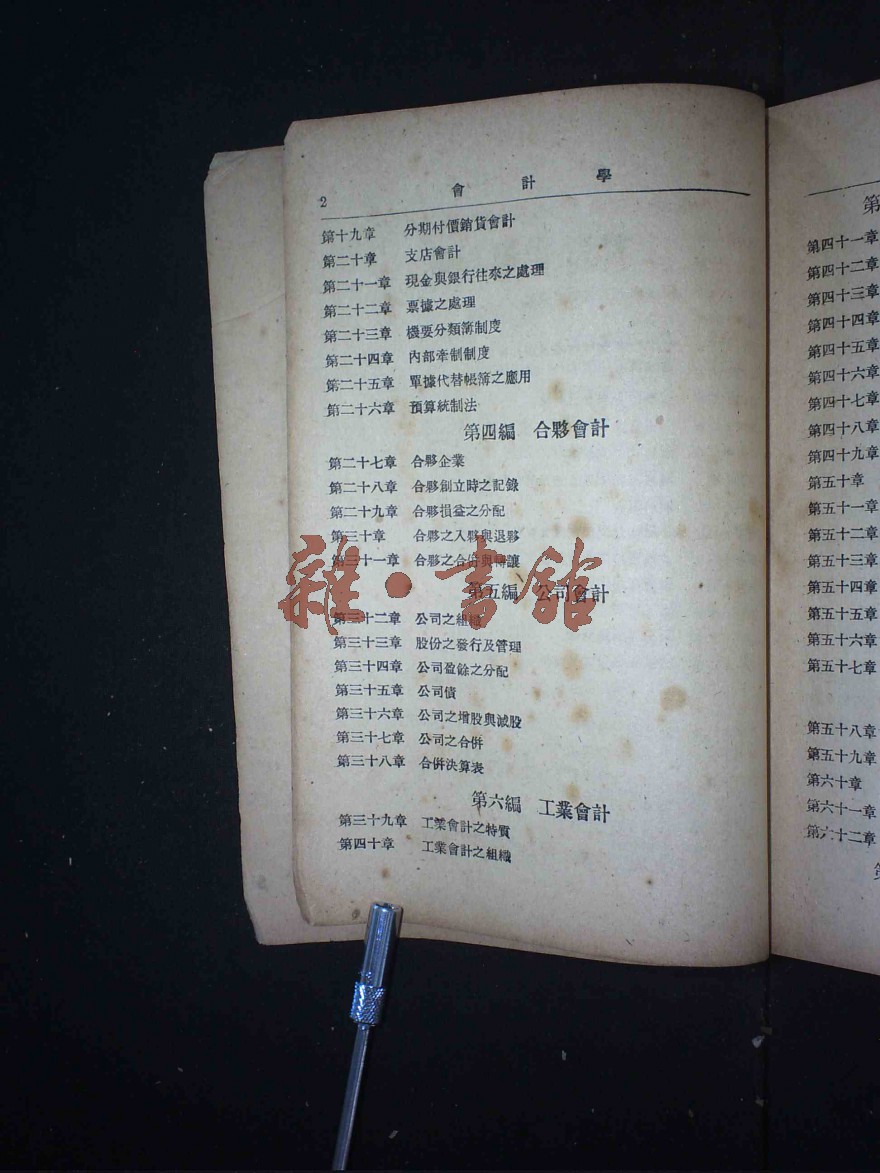 2
會計學
第十九章 分期付價銷貨會計
第二十章 支店會計
第二十一章 現金與銀行往來之處理
第二十二章 票據之處理
第二十三章 機要分類簿制度
第二十四章 內部牽制制度
第二十五章 單據代替帳簿之應用
第二十六章 預算統制法
第四編 合夥會計
第二十七章 合夥企業
第二十八章 合夥創立時之記錄
第二十九章 合夥損益之分配
第三十章 合夥之入夥與退夥
第三十一章 合夥之合併與轉讓
第五編 公司會計
第三十二章 公司之組織
第三十三章 股份之發行及管理
第三十四章 公司盈餘之分配
第三十五章 公司債
第三十六章 公司之增股與減股
第三十七章 公司之合併
第三十八章 合併決算表
第六編 工業會計
第三十九章 工業會計之特質
第四十章 工業會計之組織
雜·書館
第
第四十一章
第四十二章
第四十三章
第四十四章
第四十五章
第四十六章
第四十七章
第四十八章
第四十九章
第五十章
第五十一章
第五十二章
第五十三章
第五十四章
第五十五章
第五十六章
第五十七章
第五十八章
第五十九章
第六十章
第六十一章
第六十二章